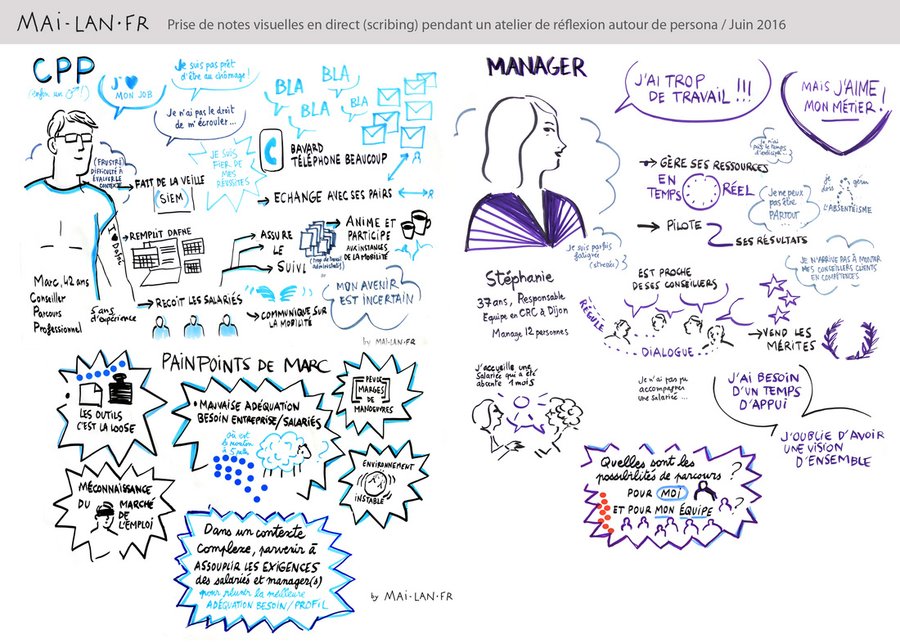 MAI•LAN•FR
Prise de notes visuelles en direct (scribing) pendant un atelier de réflexion autour de persona / Juin 2016
CPP
J'
MON JOB
Je suis pas prêt
d'être au chômage!
Je n'ai pas le droit
de m'écrouler...
BLA
BLA
BLA
BLA
(FRUSTRÉ)
DIFFICULTÉ À
ÉVALUER LE
CONTEXTE
JE SUIS
FIER DE
MES
RÉUSSITES
BAVARD
TÉLÉPHONE BEAUCOUP
FAIT DE LA VEILLE
(SIEM)
ECHANGE AVEC SES PAIRS
I
Dafne
REMPLIT DAFNE
ASSURE
LE
SUIVI
(trop de travail
administratif)
ANIME ET
PARTICIPE
AUX INSTANCES
DE LA MOBILITÉ
Marc, 42 ans
Conseiller
Parcours
Professionnel
5 ans
d'expérience
REÇOIT LES SALARIÉS
COMMUNIQUE SUR
LA MOBILITÉ
MON AVENIR
EST INCERTAIN
by MAI•LAN•FR
PAINPOINTS DE MARC
LES OUTILS
C'EST LA LOOSE
• MAUVAISE ADÉQUATION
BESOIN ENTREPRISE/SALARIÉS
où est
le mouton
à 5 pattes
PEU DE
MARGES
DE
MANOEUVRES
MÉCONNAISSANCE
DU MARCHÉ
DE
L'EMPLOI
ENVIRONNEMENT
INSTABLE
Dans un contexte
complexe, parvenir à
ASSOUPLIR LES EXIGENCES
des salariés et manager(s)
pour réussir la meilleure
ADÉQUATION BESOIN/PROFIL
by MAI•LAN•FR
MANAGER
J'AI TROP
DE TRAVAIL!!!
MAIS J'AIME
MON MÉTIER!
GÈRE SES RESSOURCES
EN
TEMPS RÉEL
Je ne peux
pas être
PARTOUT
je
dois gérer
L'ABSENTÉISME
PILOTE
SES RÉSULTATS
Je suis parfois
fatiguée
(stressée)
JE N'ARRIVE PAS À MONTER
MES CONSEILLERS CLIENTS
EN COMPÉTENCES
Stéphanie
37 ans, Responsable
Equipe en CRC à Dijon
Manage 12 personnes
EST PROCHE
DE SES CONSEILLERS
RÉGULE
DIALOGUE
VEND LES
MÉRITES
J'accueille une
salariée qui a été
absente 1 mois
Je n'ai pas pu
accompagner
une salariée ...
J'AI BESOIN
D'UN TEMPS
D'APPUI
J'OUBLIE D'AVOIR
UNE VISION
D'ENSEMBLE
Quelles sont les
possibilités de parcours ?
POUR MOI
ET POUR MON ÉQUIPE ?